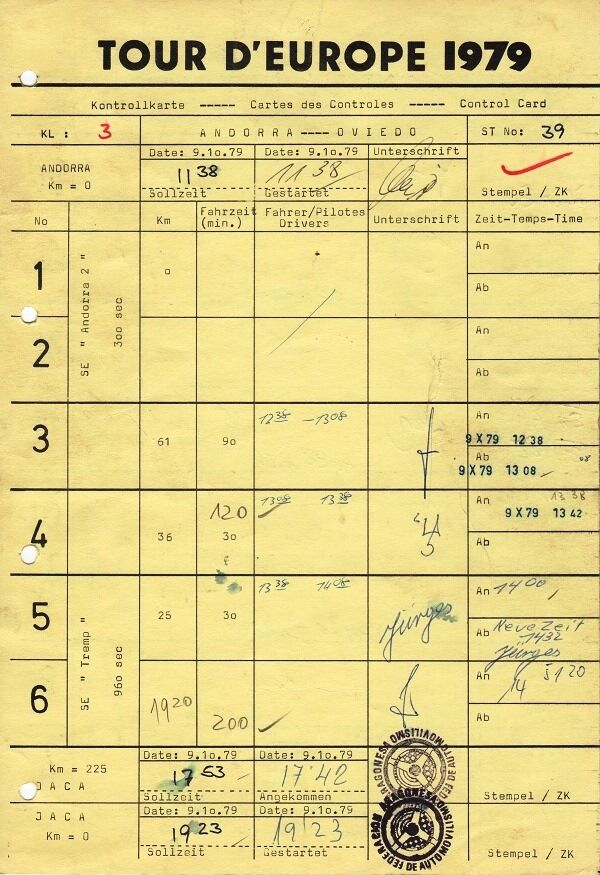 TOUR D'EUROPE 1979
Kontrollkarte ----- Cartes des Controles ----- Control Card
KL : 3 ANDORRA ---- OVIEDO ST No: 39
ANDORRA Date: 9.10.79 Date: 9.10.79 Unterschrift
Km = 0 11 38 11 38
Sollzeit Gestartet Stempel / ZK
No Km Fahrzeit (min.) Fahrer/Pilotes Drivers Unterschrift Zeit-Temps-Time
SE " Andorra 2 "
300 sec
1 0 An
Ab
2 An
Ab
3 61 90 12 38 - 13 08 An
9 X 79 12 38
Ab
9 X 79 13 08 08
4 120 13 08 13 38 An 13 38
9 X 79 13 42
36 30
Ab
SE " Tremp "
960 sec
5 25 30 13 38 14 08 Jürges An 14 00
Ab Neue Zeit
1432
Jürges
6 1920 200 An
Ab
Km = 225 Date: 9.10.79 Date: 9.10.79
17 53 17 42
JACA Sollzeit Angekommen Stempel / ZK
JACA Date: 9.10.79 Date: 9.10.79
Km = 0 19 23 19 23
Sollzeit Gestartet Stempel / ZK
FEDERACION ARAGONESA DE AUTOMOVILISMO
FEDERACION ARAGONESA DE AUTOMOVILISMO